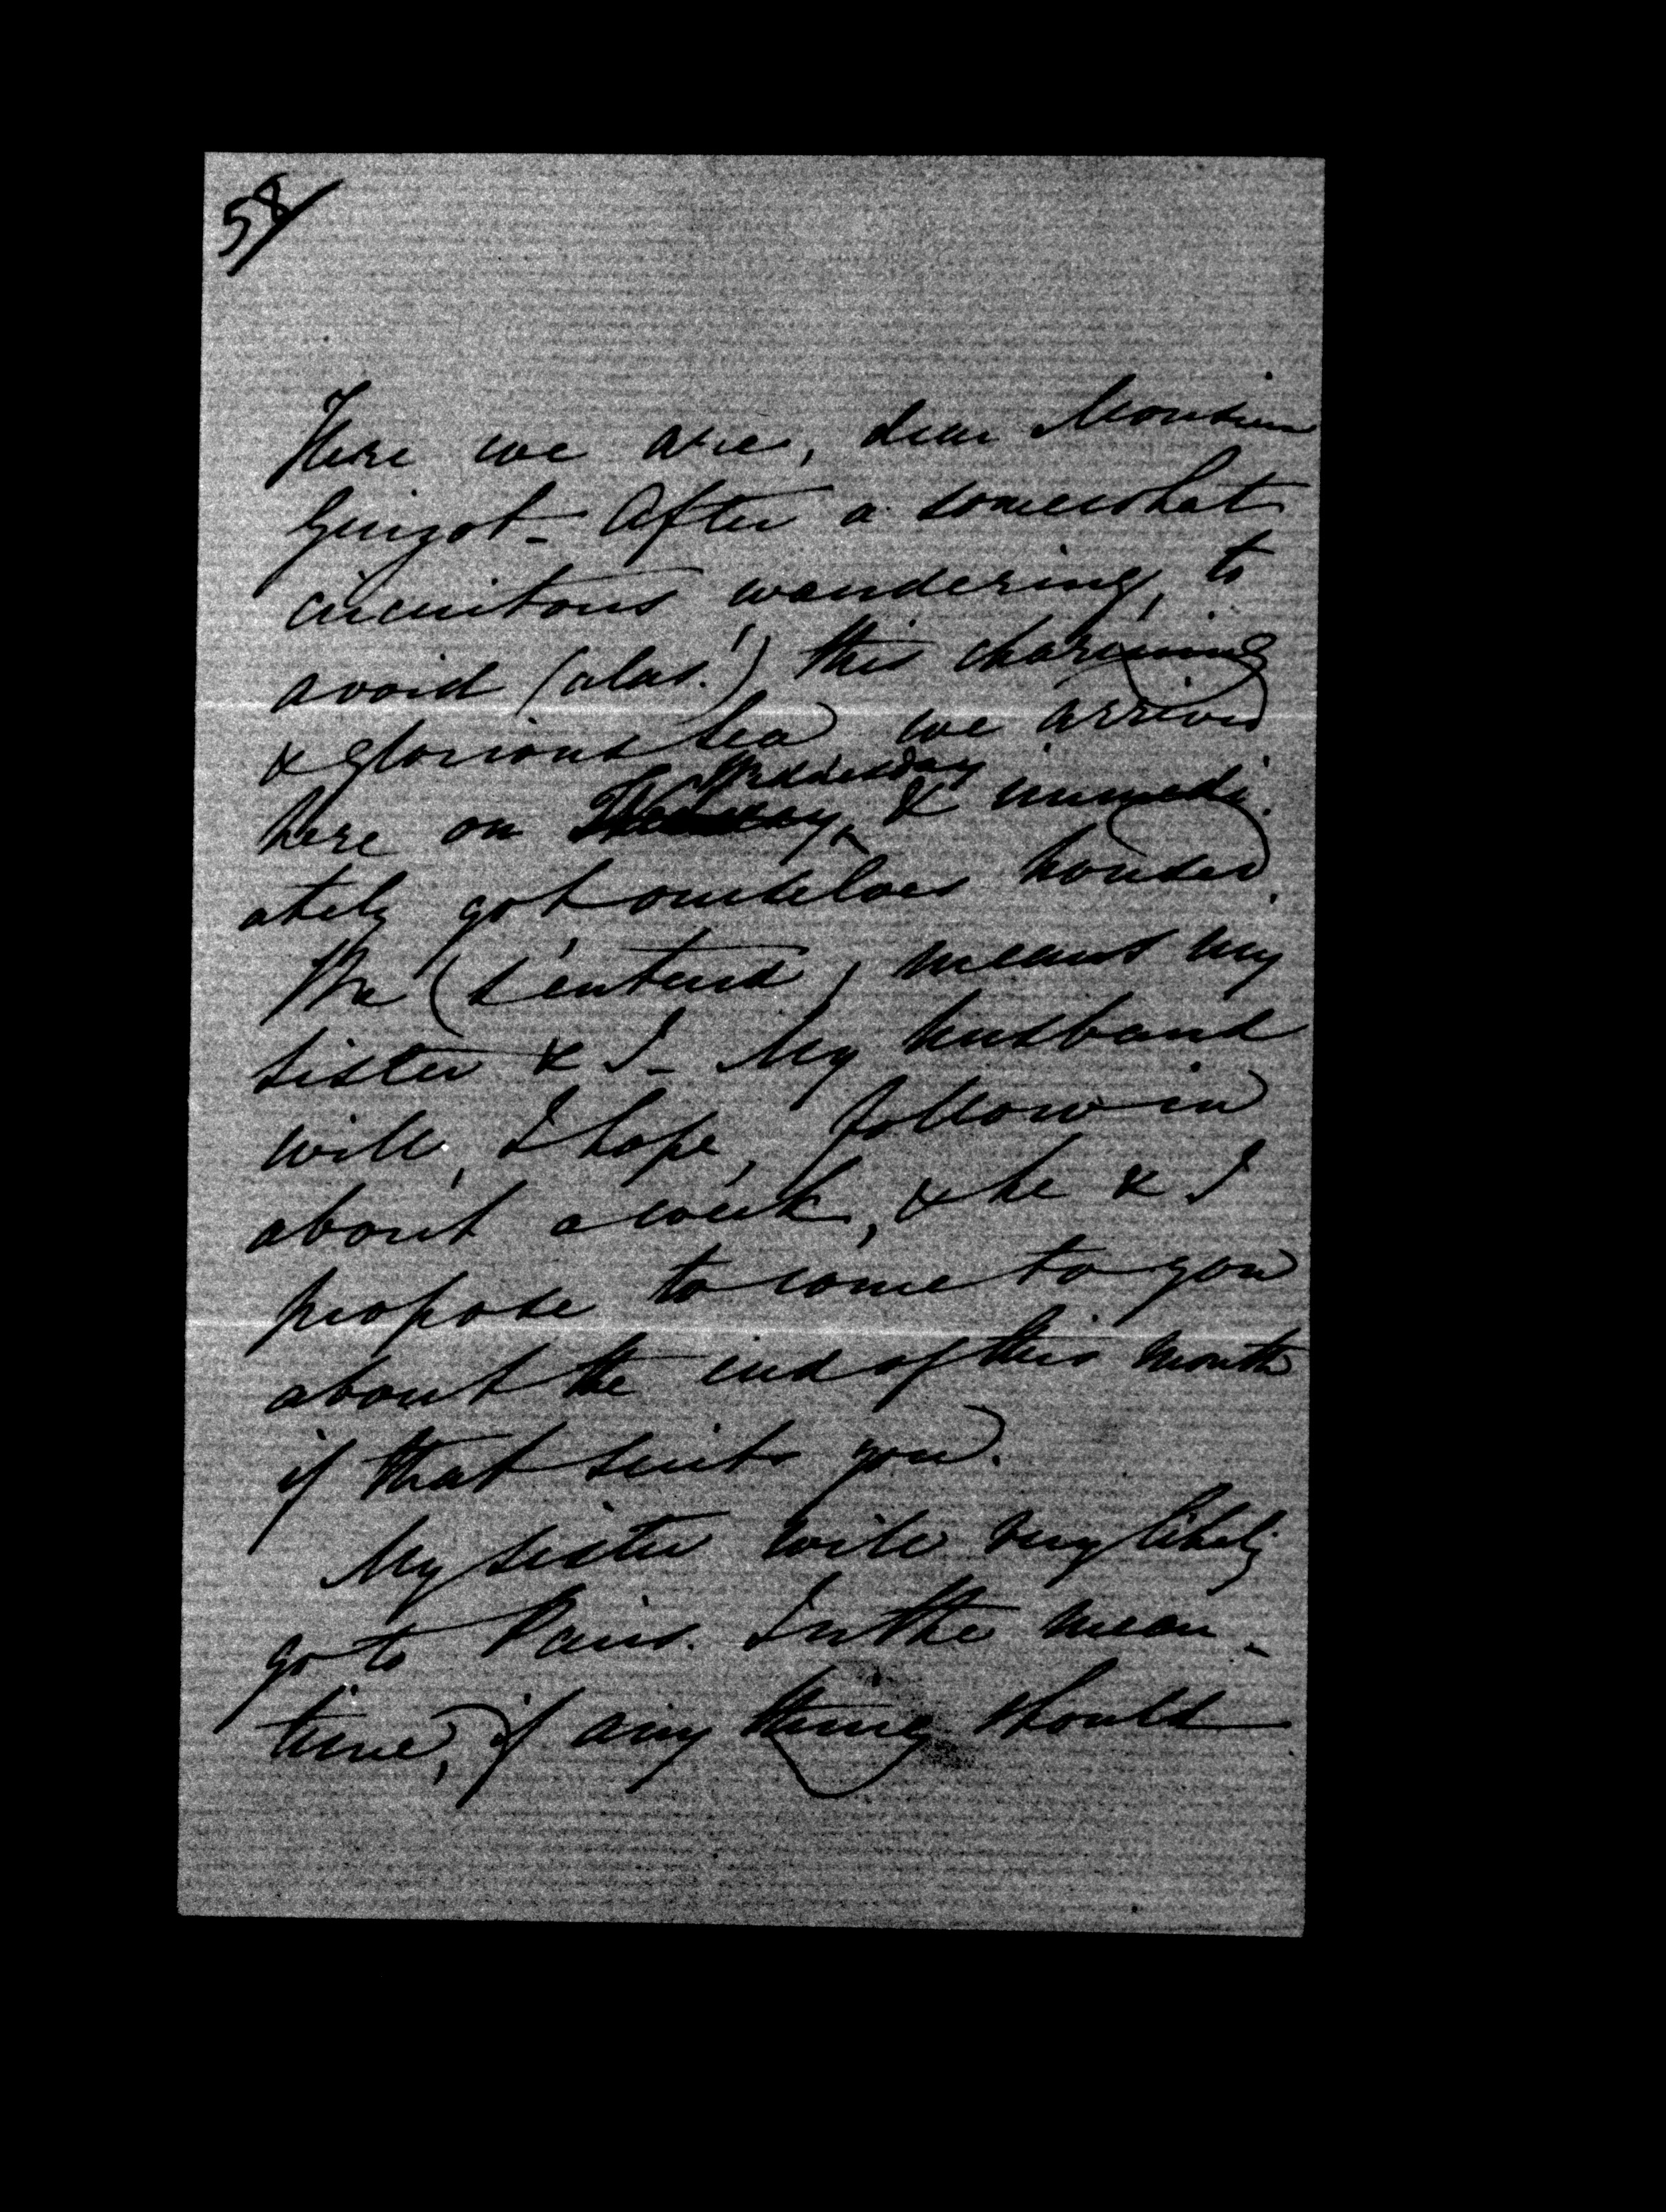 58
Here we are, dear Monsieur
Guizot - After a somewhat
circuitous wandering, to
avoid (alas!) this charming
& glorious sea, we arrived
here on Wednesday & immedi-
ately got ourselves housed.
We (s'entend) means my
sister & I - My husband
will, I hope, follow in
about a week, & he & I
propose to come to you
about the end of this month
if that suits you.
My sister will very likely
go to Paris. In the mean-
time, if any thing should